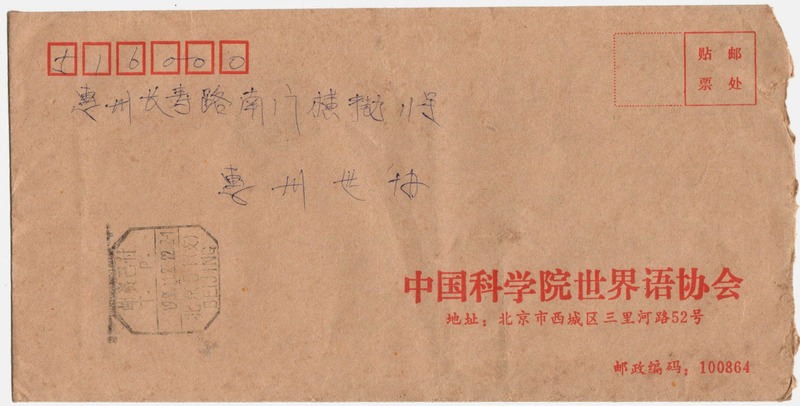 516000
贴 邮
票 处
惠州长寿路南门横街11号
惠州世协
邮资已付
T. P.
北京
BEIJING
中国科学院世界语协会
地址：北京市西城区三里河路52号
邮政编码：100864